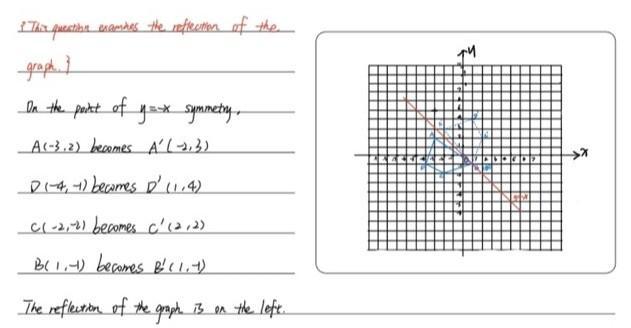 {This question examines the reflection of the
graph.}
On the point of y=-x symmetry,
A(-3,2) becomes A'(-2,3)
D(-4,-1) becomes D'(1,4)
C(-2,-2) becomes C'(2,2)
B(1,-1) becomes B'(1,-1)
The reflection of the graph is on the left.
y
x
y=-x